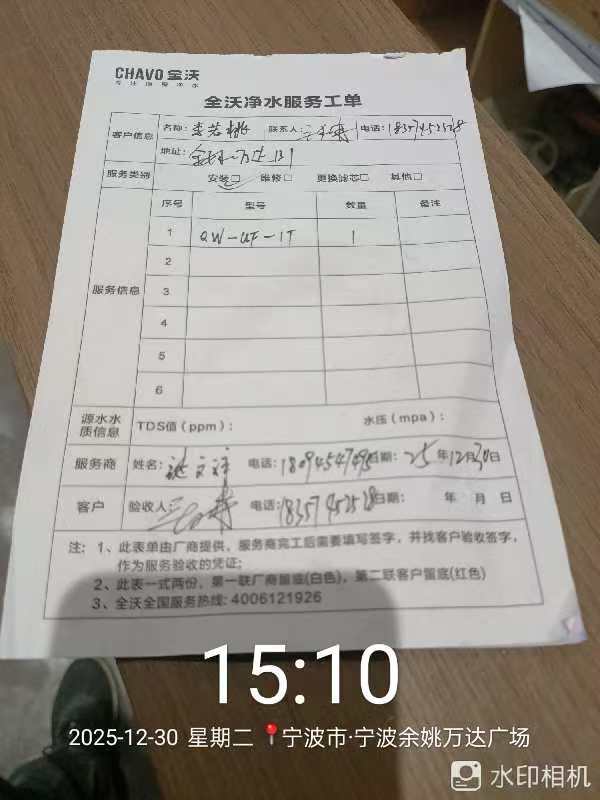 CHAVO 全沃
专注健康净水
全沃净水服务工单
客户信息 名称： 联系人： 电话：18357452528
地址：
服务类别 安装☑ 维修□ 更换滤芯□ 其他□
服务信息 序号 型号 数量 备注
1 QW-UF-1T 1
2
3
4
5
6
源水水质信息 TDS值（ppm）： 水压（mpa）：
服务商 姓名： 电话：18094547495 日期：25年12月30日
客户 验收人： 电话：18357452528 日期： 年 月 日
注：1、此表单由厂商提供，服务商完工后需要填写签字，并找客户验收签字，
作为服务验收的凭证；
2、此表一式两份，第一联厂商留底(白色)，第二联客户留底(红色)
3、全沃全国服务热线: 4006121926
15:10
2025-12-30 星期二 宁波市·宁波余姚万达广场
水印相机